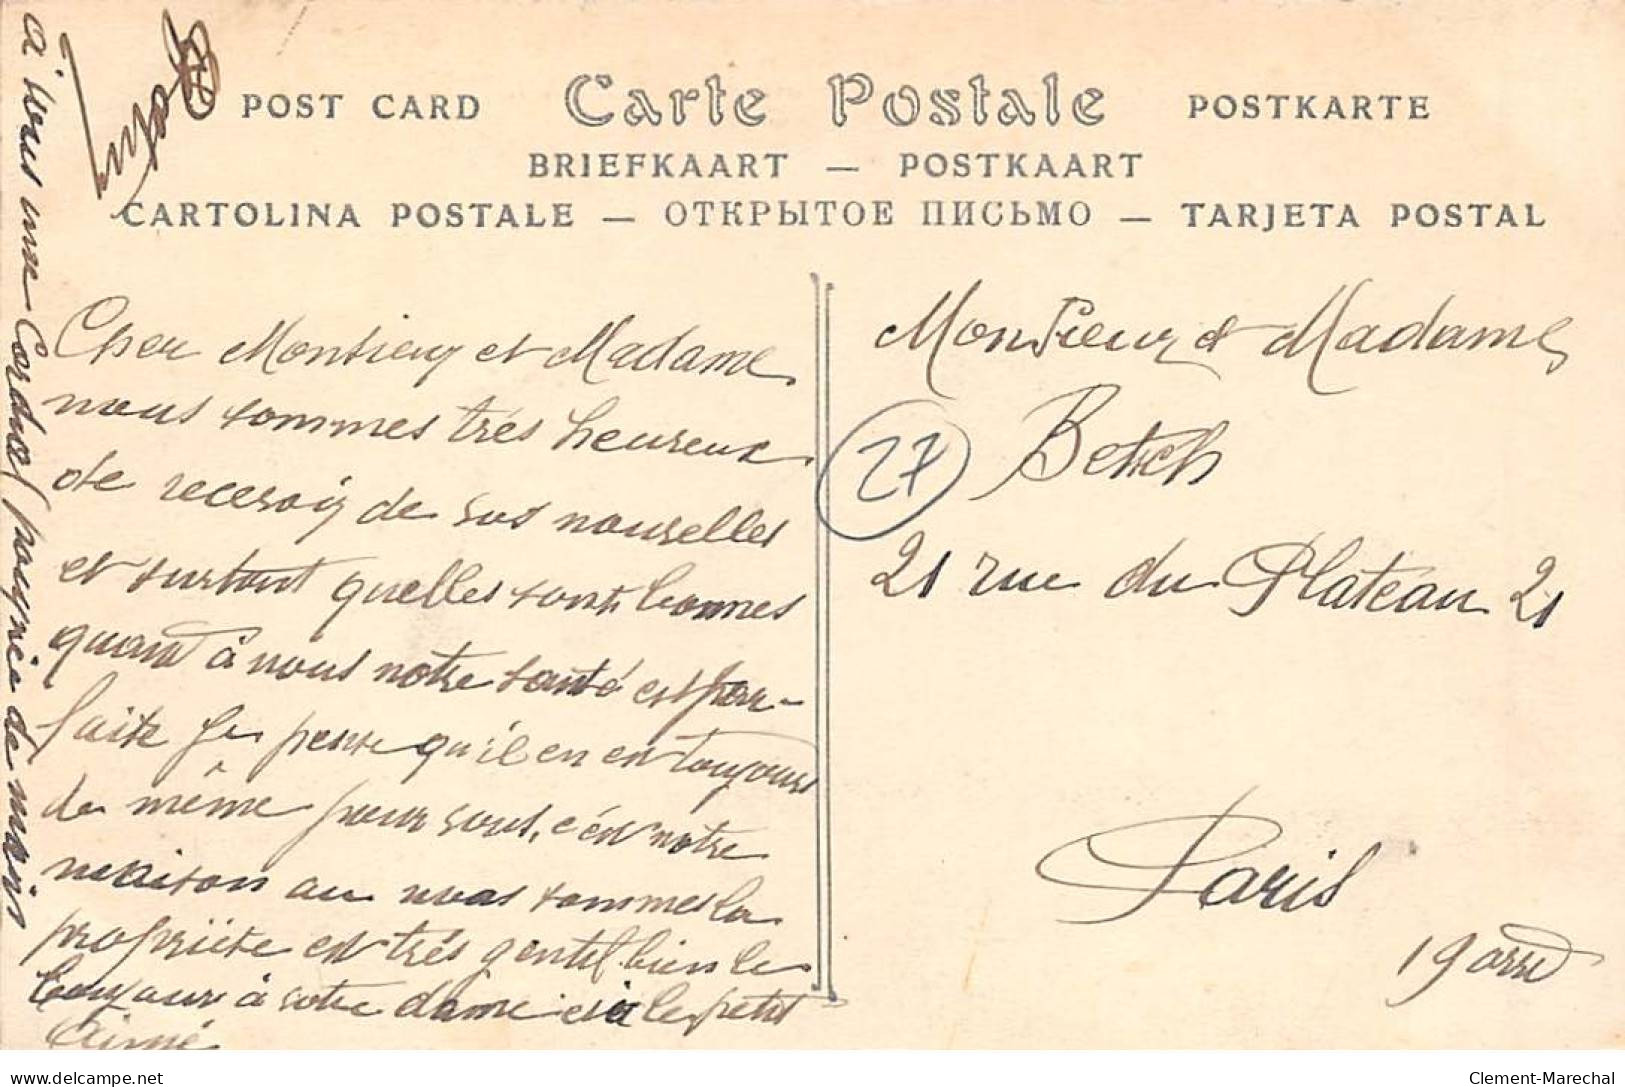 POST CARD Carte Postale POSTKARTE
BRIEFKAART — POSTKAART
CARTOLINA POSTALE — ОТКРЫТОЕ ПИСЬМО — TARJETA POSTAL
Cher Monsieur et Madame
nous sommes très heureux
de recevoir de vos nouvelles
et surtout quelles sont bonnes
quant à nous notre santé est par-
faite je pense qu'il en est toujours
de même pour vous, c'est notre
maison au nous sommes la
propriète est très gentil. bien le
bonjour à votre dame et à le petit
Aimé
à vous une Cordial poignée de main
Monsieur & Madame
Betsch
27
21 rue du Plateau 21
Paris
19 arrd
Clement-Marechal
delcampe.net